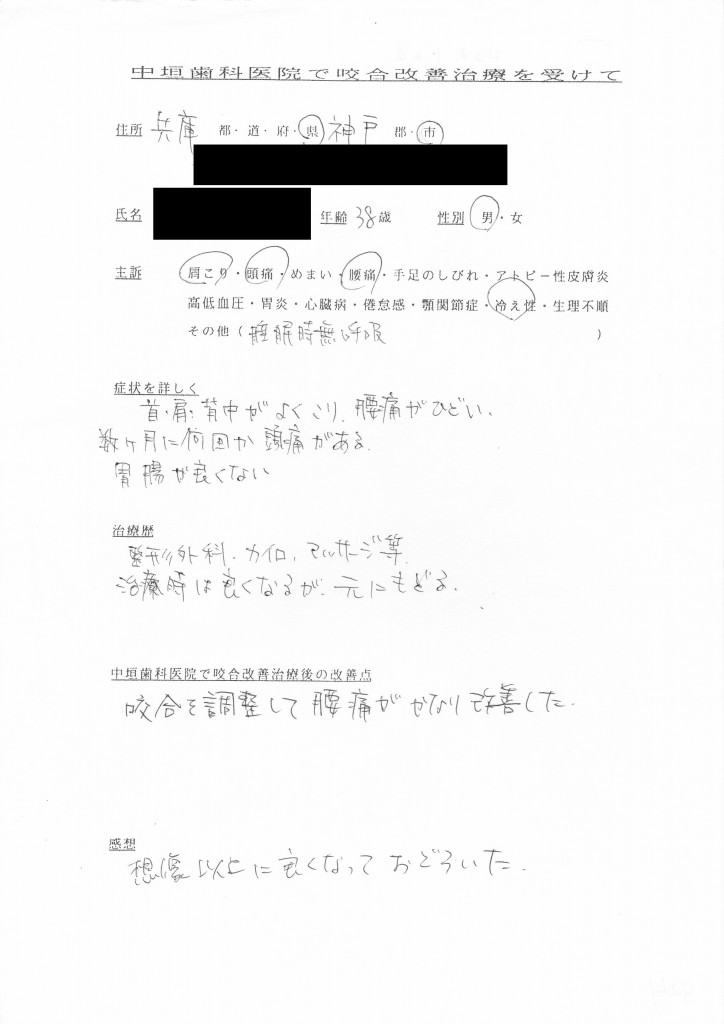 中垣歯科医院で咬合改善治療を受けて
住所 兵庫 都・道・府・県 神戸 郡・市
氏名 年齢 38歳 性別 男・女
主訴 肩こり・頭痛・めまい・腰痛・手足のしびれ・アトピー性皮膚炎
高低血圧・胃炎・心臓病・倦怠感・顎関節症・冷え性・生理不順
その他(睡眠時無呼吸)
症状を詳しく
首、肩、背中がよくこり、腰痛がひどい。
数ヶ月に何回か頭痛がある。
胃腸が良くない
治療歴
整形外科、カイロ、マッサージ等。
治療時は良くなるが、元にもどる。
中垣歯科医院で咬合改善治療後の改善点
咬合を調整して腰痛がかなり改善した。
感想
想像以上に良くなっておどろいた。